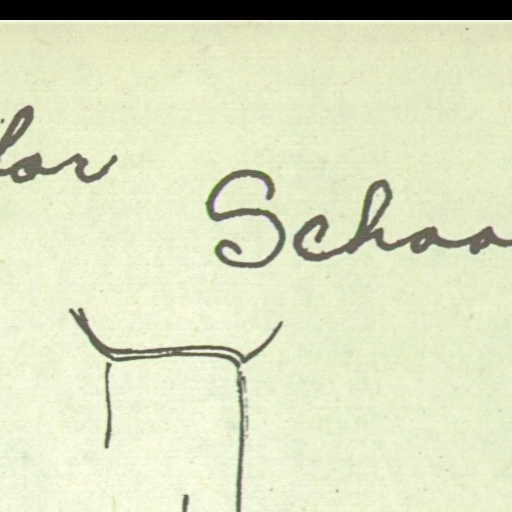 lor
Schoo